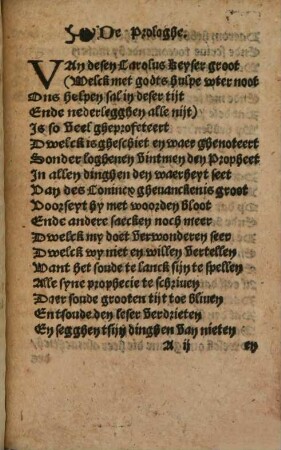 De Prologhe.
VAn desen Carolus keyser groot
(Welck met godts hulpe wter noot
Ons helpen sal in deser tijt
Ende nederlegghen alle nijt)
Is so veel gheprofeteert
Dwelck is gheschiet en waer ghenoteert
Sonder loghenen vintmen den Propheet
In allen dinghen den waerheyt seet
Van des Conincx ghevanckenis groot
Voorseyt hy met woorden bloot
Ende andere saecken noch meer
Dwelck my doet verwonderen seer
Dwelck wy niet en willen vertellen
Want het soude te lanck sijn te spellen
Alle syne prophecie te schriuen
Daer soude grooten tijt toe bliuen
En tsoude den leser verdrieten
En segghen tsijn dinghen van nieten
A ij
ey